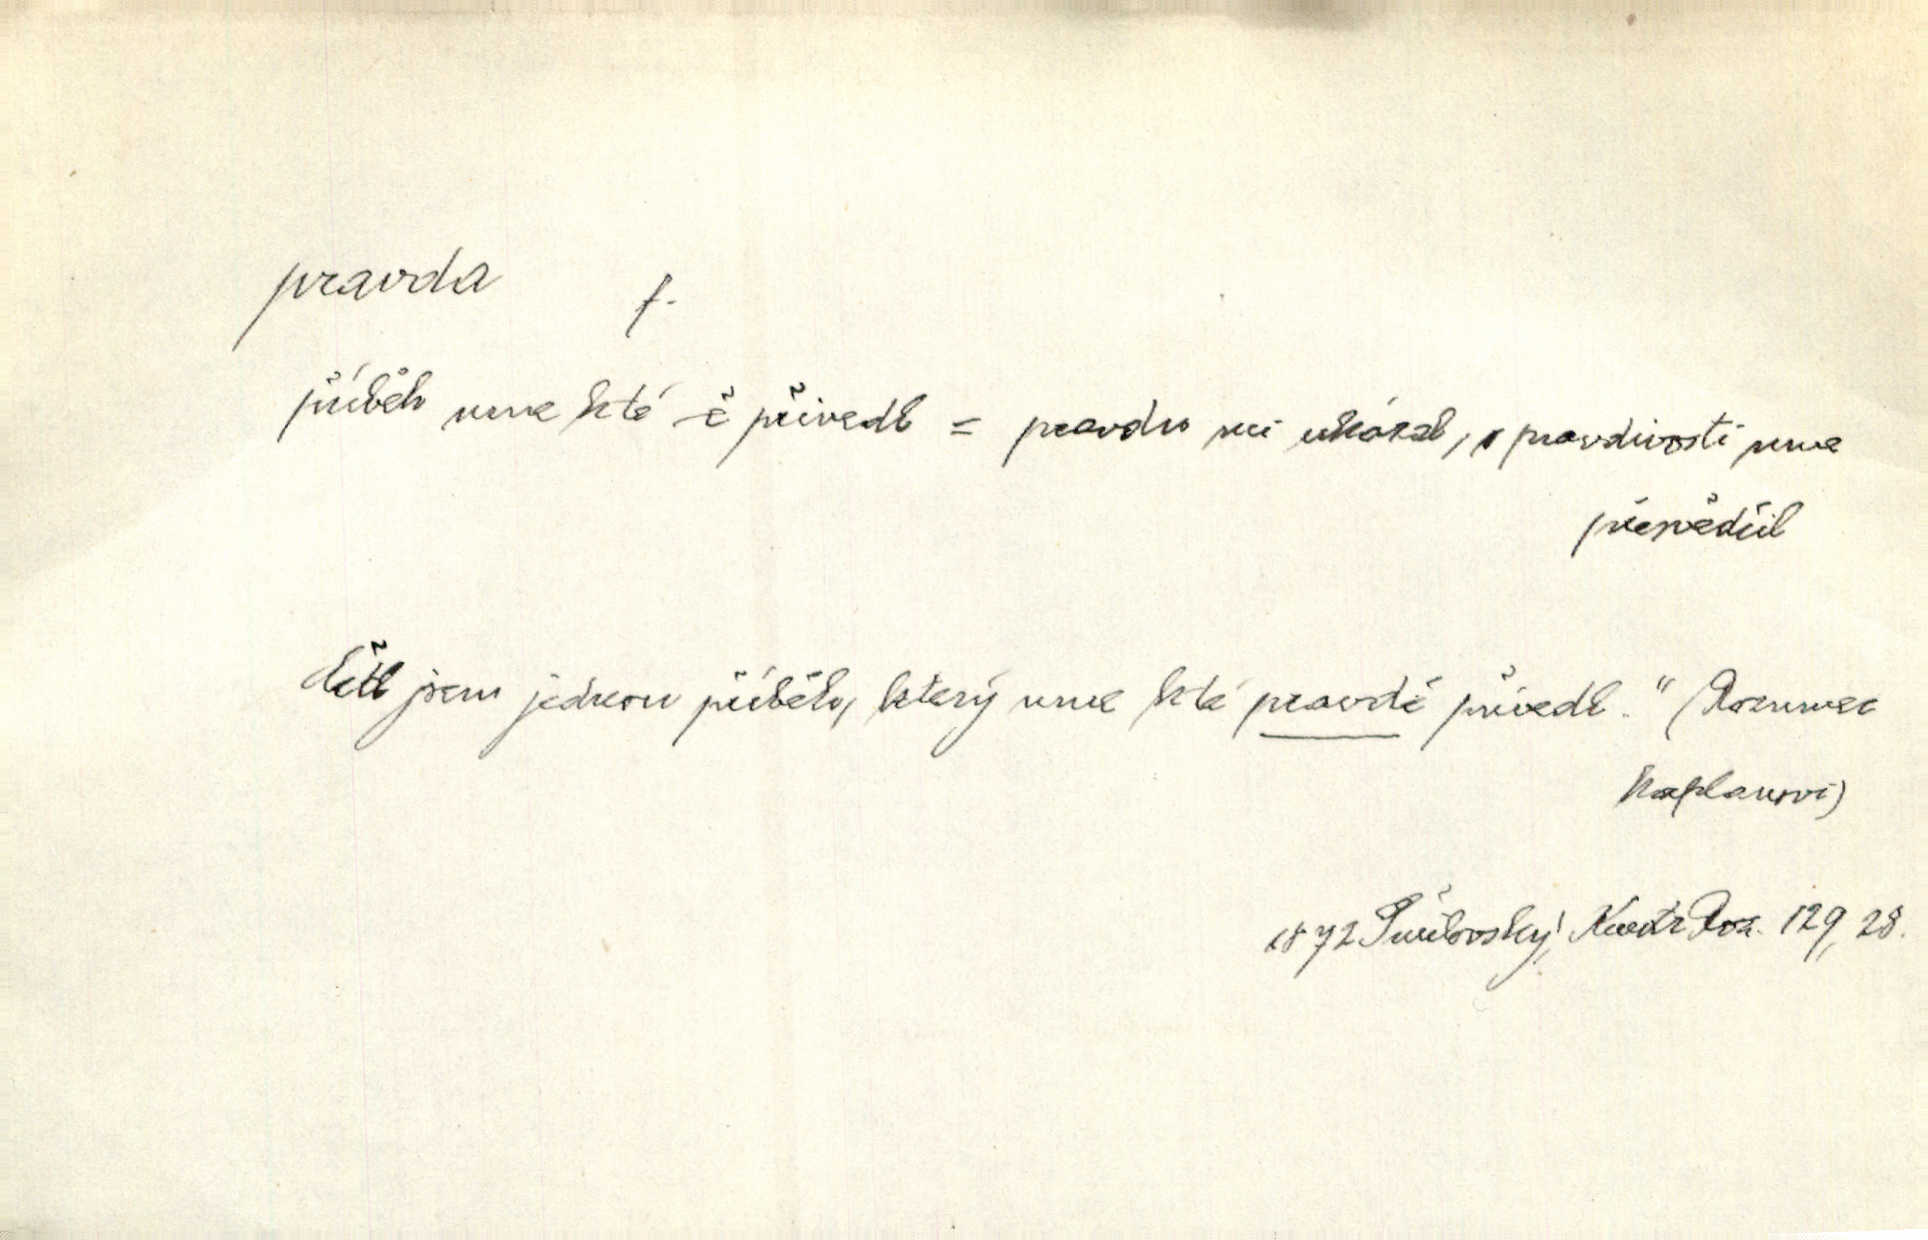 pravda f.
příběh mne k té -ě přivedl = pravdu mi ukázal, o pravdivosti mne
přesvědčil
Četl jsem jednou příběh, který mne k té pravdě přivedl." (Rozumec
kaplanovi)
1872 Šmilovský, Roz. 129, 28.